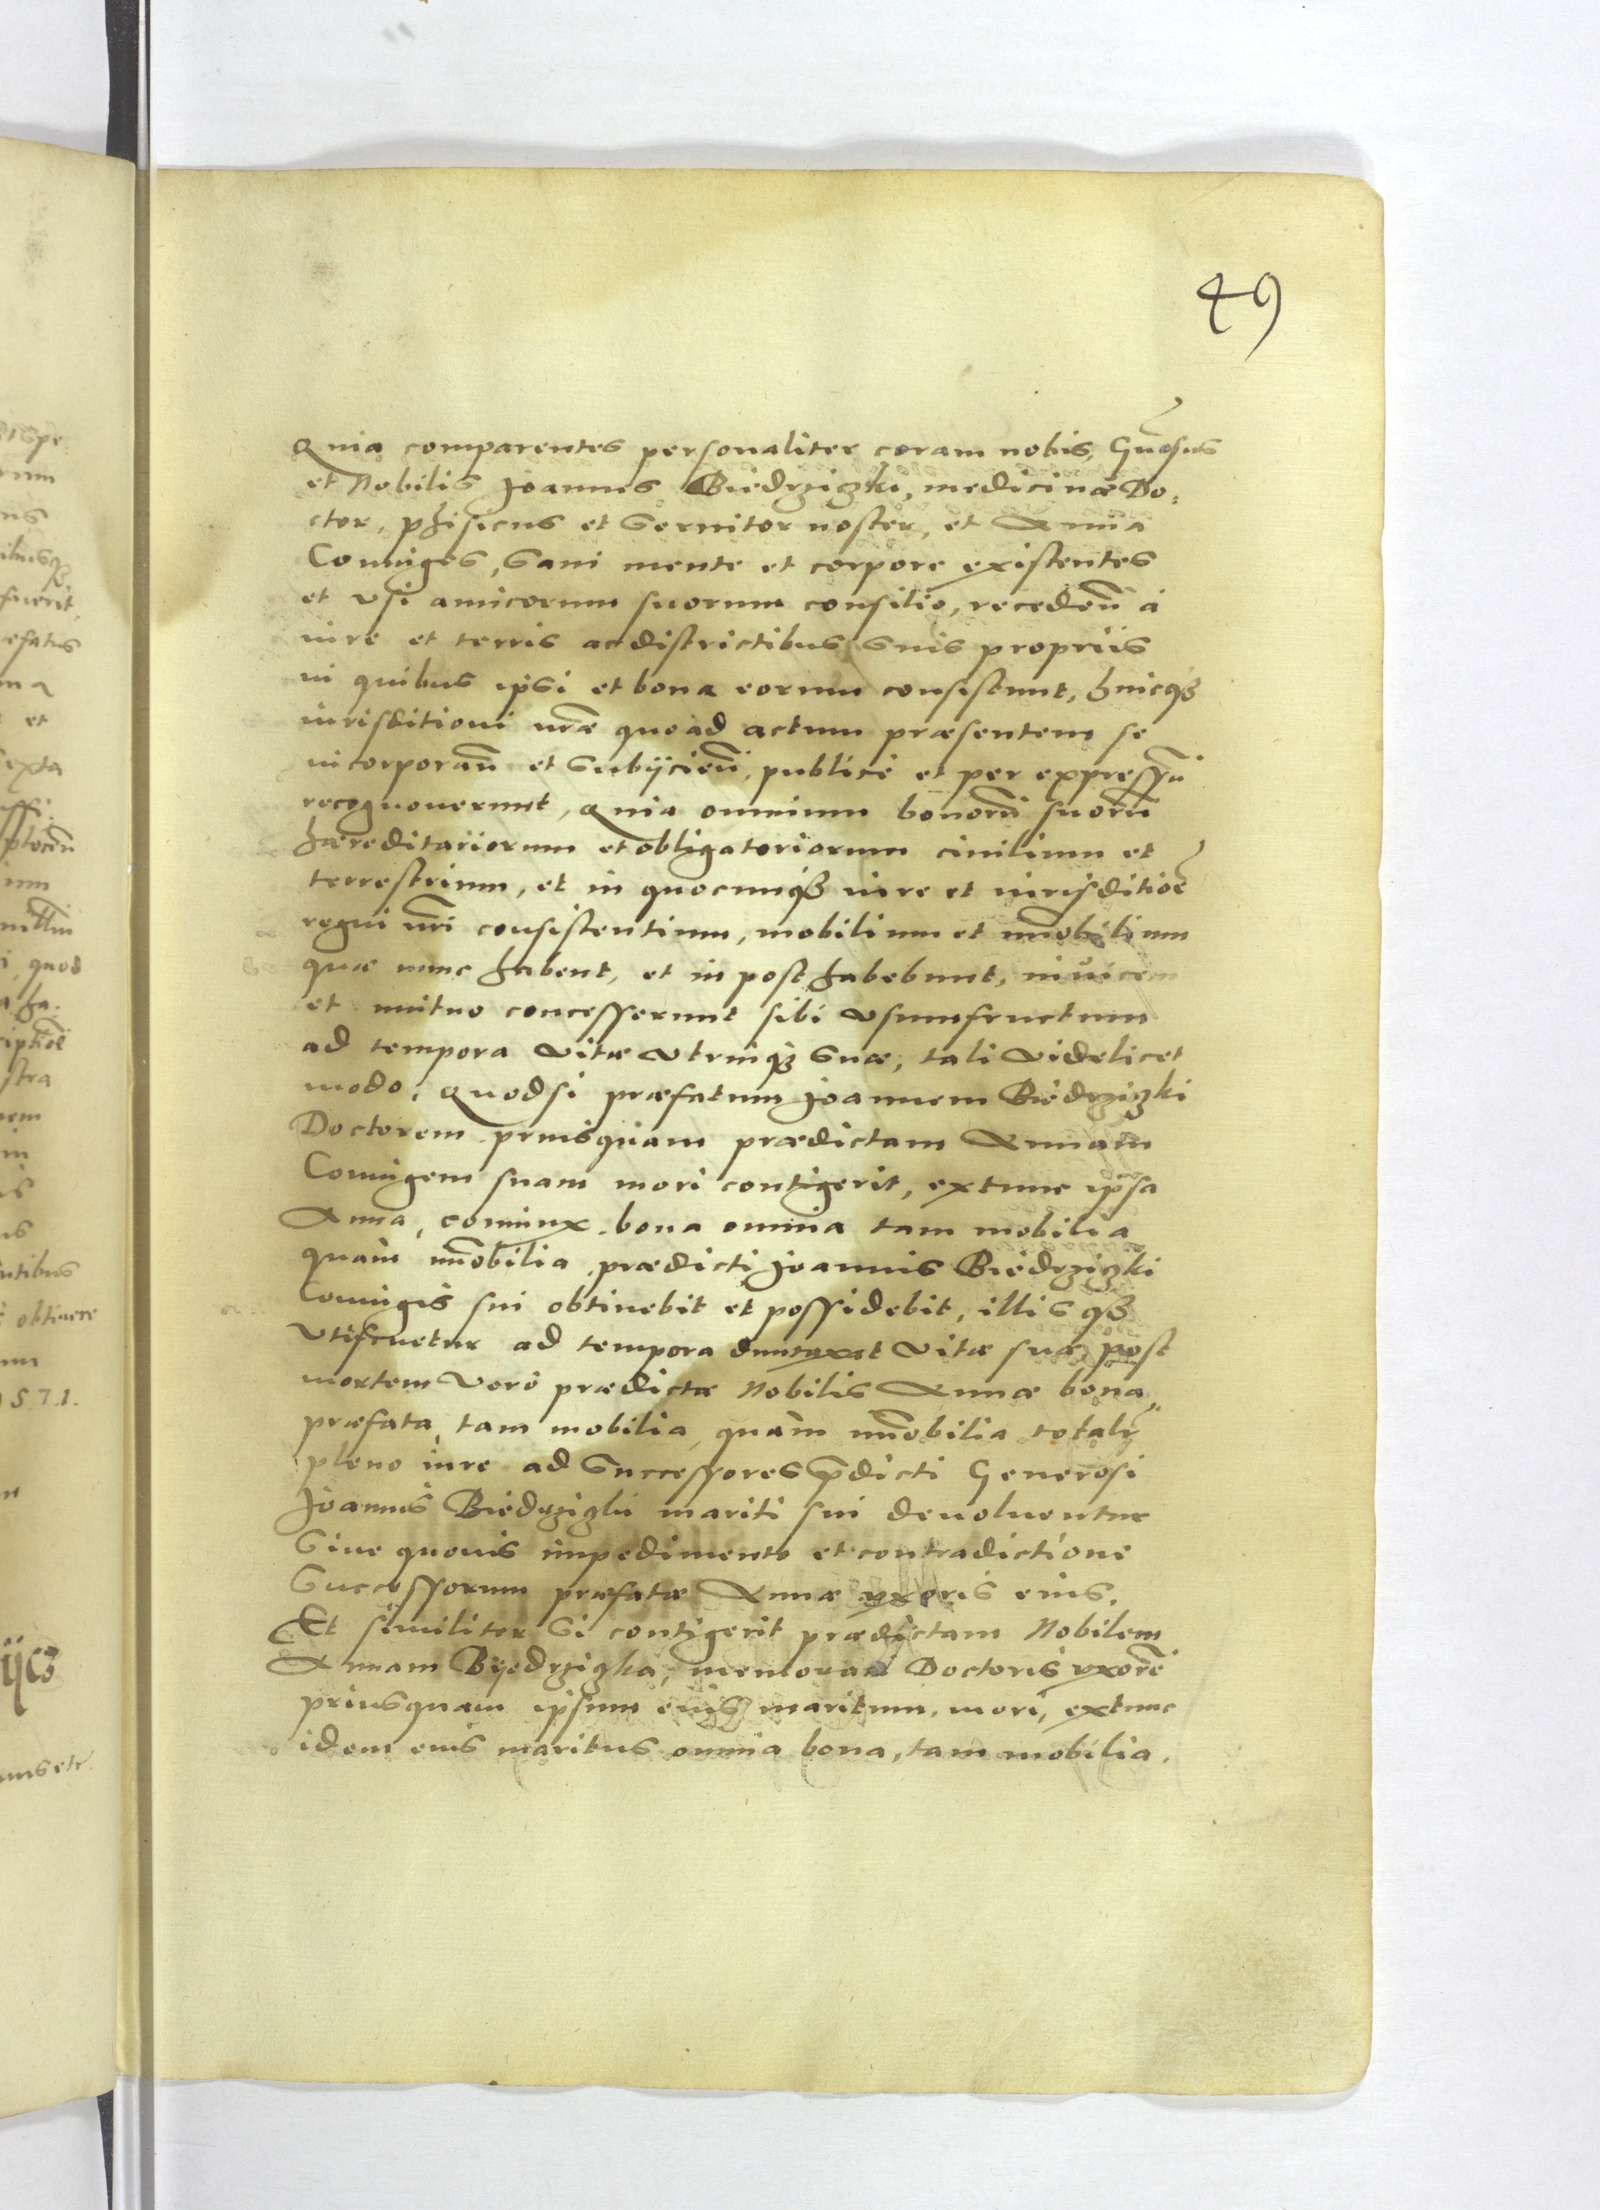 49
Quia comparentes personaliter coram nobis, Gn̄osus
et Nobilis Joannes Biedrziczki, medicinæ Do,
ctor, phisicus et Servitor noster, et Anna
Coniuges, Sani mente et corpore existentes
et vsi amicorum suorum consilio, receden̄ à
iure et terris ac districtibus Suis proprijs
in quibus ipsi et bona eorum consistunt, huicqȝ
iurisditioni nr̄æ quoad actum præsentem se
incorporan̄ et Subijcien̄, publicè et per expressū
recognoverunt, Quia omnium bonorū suorū
hæreditariorum et obligatoriorum civilium et
terrestrium, et in quocunqȝ iure et iurisditiōe
regni nr̄i consistentium, mobilium et im̄obilium
quæ nunc habent, et in post habebunt, invicem
et mutuo concesserunt sibi vsumfructum
ad tempora vitæ vtriusqȝ suæ, tali videlicet
modo: Quod si præfatum Joannem Biedrziczki
Doctorem priusquam prædictam Annam
Coniugem suam mori contigerit, extunc ipsa
Anna, coniunx bona omnia tam mobilia
quàm im̄obilia prædicti Joannis Biedrziczki
Coniugis sui obtinebit et possidebit, illisqȝ
Vtifruetur ad tempora duntaxat vitæ suæ, post
mortem verò prædictæ Nobilis Annæ bona
præfata, tam mobilia, quàm im̄obilia totali
pleno iure ad Successores p̄dicti Generosi
Joannis Biedrziczki mariti sui devoluentur
Sine quovis impedimento et contradictione
Successorum præfatæ Annæ vxoris eius.
Et similiter Si contigerit prædictam Nobilem
Annam Byedrziczka, memorati Doctoris vxorē
priusquam ipsum eius maritum, mori, extunc
idem eius maritus omnia bona, tam mobilia.